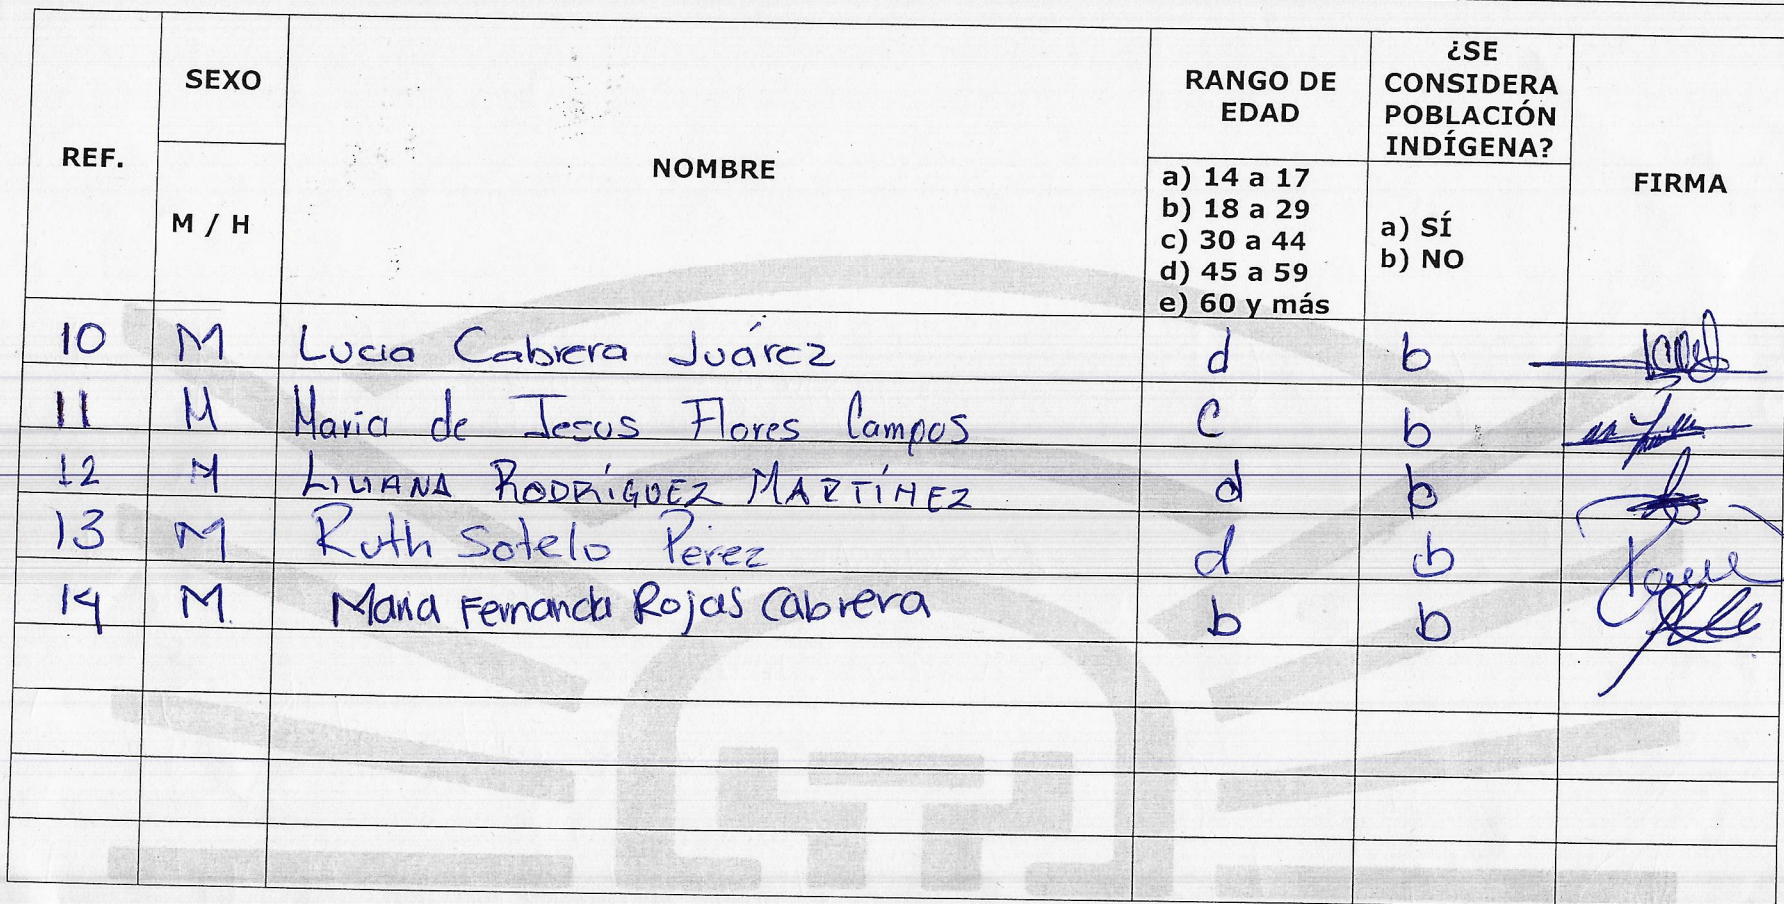 REF.
SEXO
M / H
NOMBRE
RANGO DE
EDAD
a) 14 a 17
b) 18 a 29
c) 30 a 44
d) 45 a 59
e) 60 y más
¿SE
CONSIDERA
POBLACIÓN
INDÍGENA?
a) SÍ
b) NO
FIRMA
10 M Lucia Cabrera Juárez d b
11 M Maria de Jesus Flores Campos c b
12 M LILIANA RODRÍGUEZ MARTÍNEZ d b
13 M Ruth Sotelo Perez d b
14 M Maria Fernanda Rojas Cabrera b b